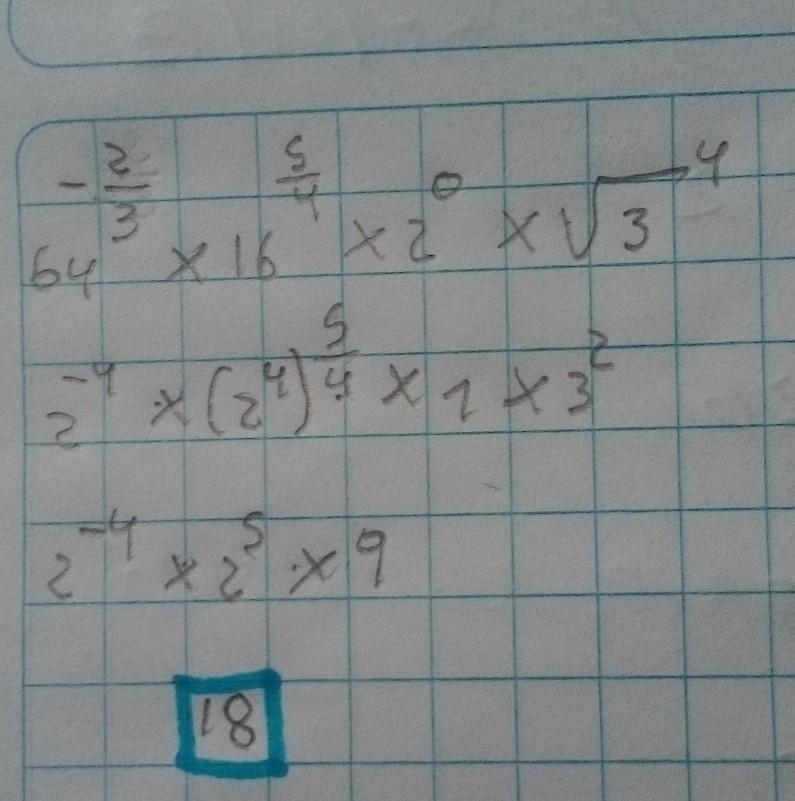 64^{-\frac{2}{3}} × 16^{\frac{5}{4}} × 2^0 × \sqrt{3}^4
2^{-4} × (2^4)^{\frac{5}{4}} × 1 × 3^2
2^{-4} × 2^5 × 9
18